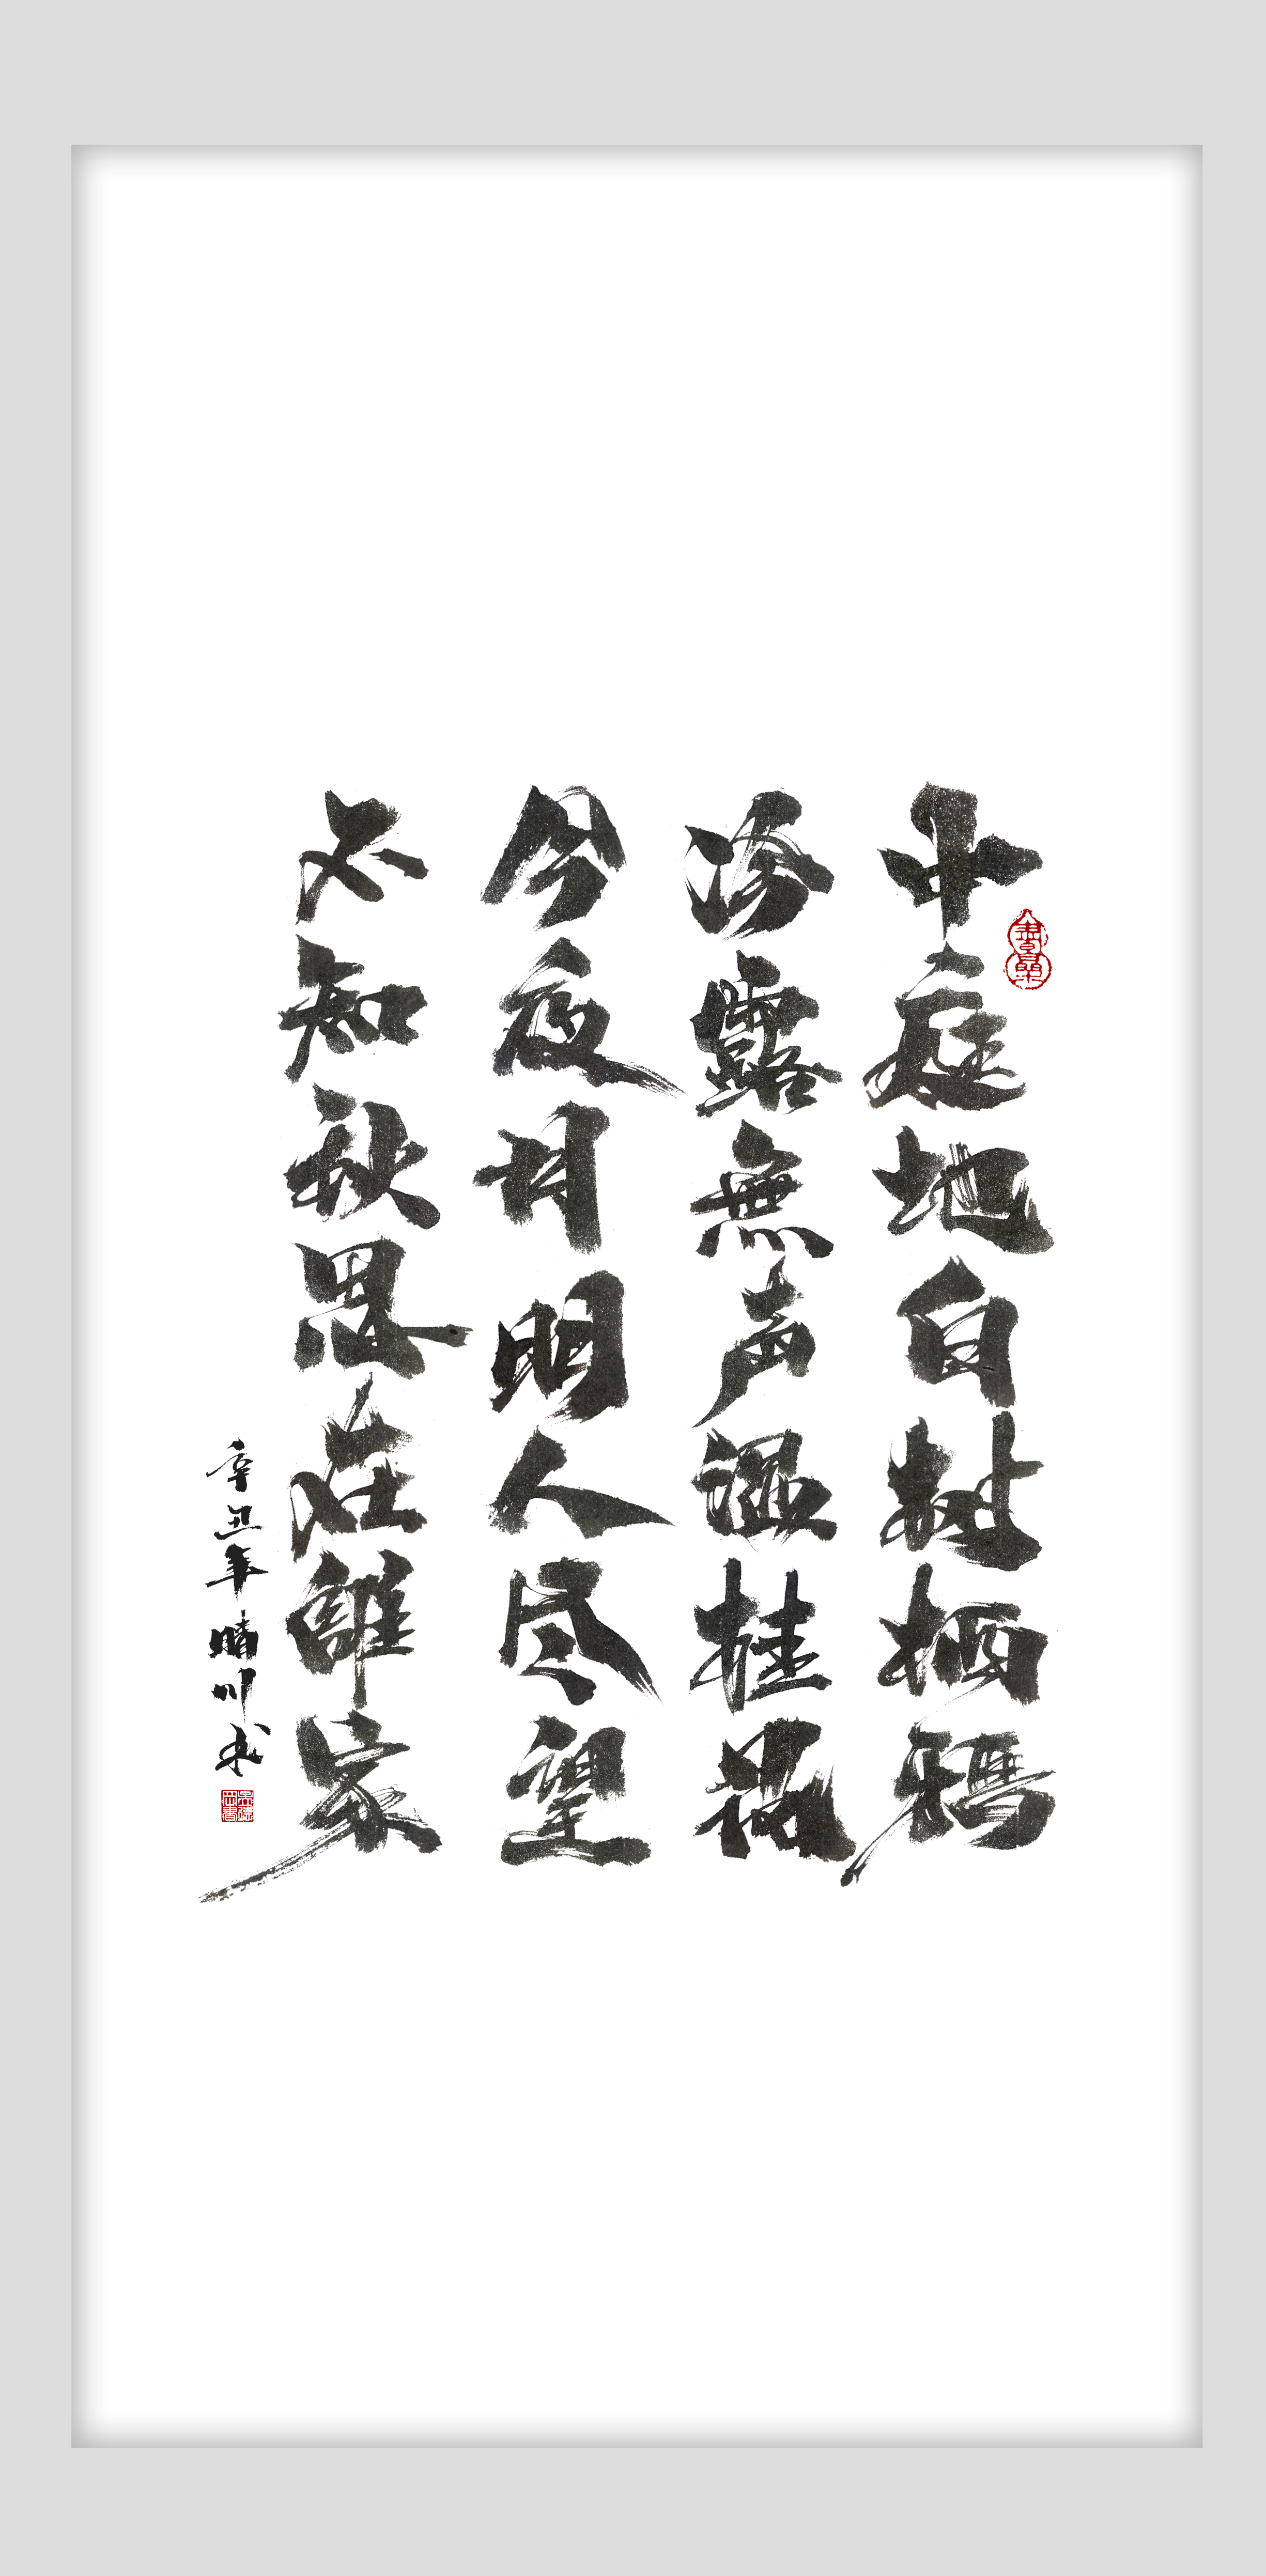 中庭地白树栖鴉
冷露無声湿桂花
今夜月明人尽望
不知秋思在誰家
辛丑年晴川书